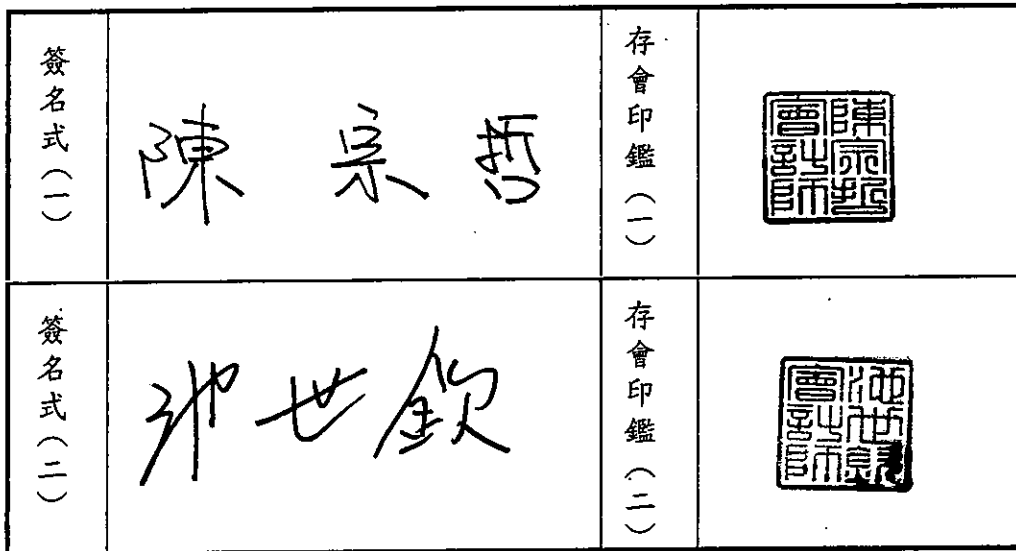 簽名式（一）
陳宗哲
存會印鑑（一）
陳宗哲會計師
簽名式（二）
池世欽
存會印鑑（二）
池世欽會計師